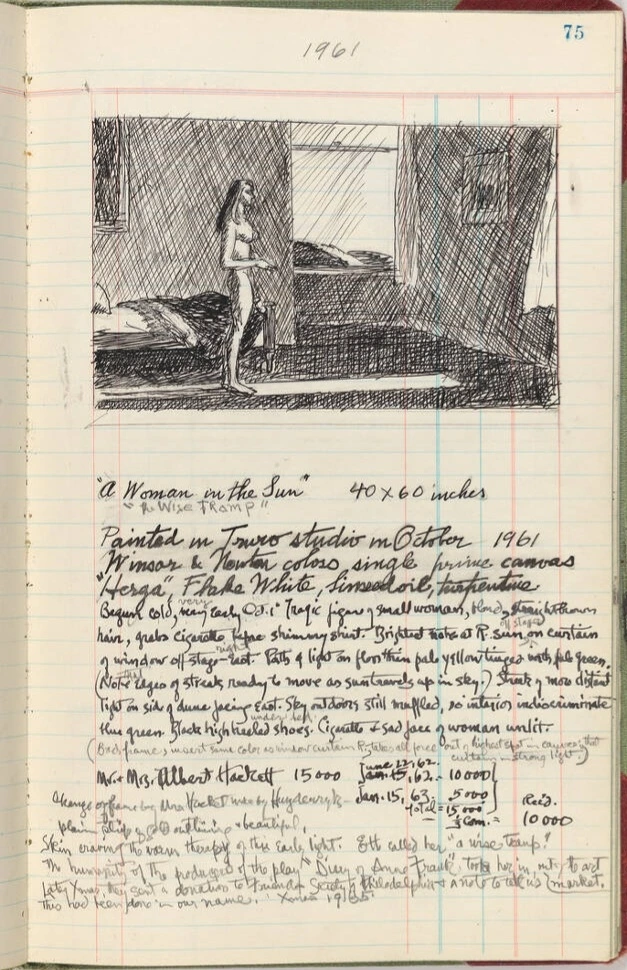 75
1961
"A Woman in the Sun"   40 x 60 inches
"the Wise Tramp"
Painted in Truro studio in October 1961
Winsor & Newton colors, single prime canvas
"Herga", Flake White, linseed oil, turpentine.
Begun cold, very early Oct. 1st Tragic figure of small woman, blond, straight brown
hair, grabs cigarette before shimmy shirt. Brightest note at R. sun on curtain
off stage
of window off stage right East. Path of light on floor thin pale yellow tinged with pale green.
(Note that edges of streaks ready to move as sun travels up in sky.) Streak of most distant
light on side of dune facing East. Sky outdoors still muffled, as interior indiscriminate
blue green. Black high heeled shoes under bed. Cigarette & sad face of woman unlit.
(Back frame, insert same color as window curtain Pictures all force out of highest spot in canvas, that
curtain in strong light.)
Mr. & Mrs. Albert Hackett   15000   June 22, 62.
Jan. 15, 62. - 10000
Jan. 15, 63.   5000
Total = 15000
1/3 Com. =
Rec'd.
10000
Change of frame by Mrs Hackett made by Heydenryk -
plain strip of gold outlining & beautiful.
Skin craving the warm therapy of this early light. Eth called her "a wise tramp."
The humanity of the producers of the play "Diary of Anne Frank" took her in, out of the art
market.
Later Xmas, they sent a donation to Friends Society Philadelphia & a note to tell us
this had been done in our name. Xmas 1965